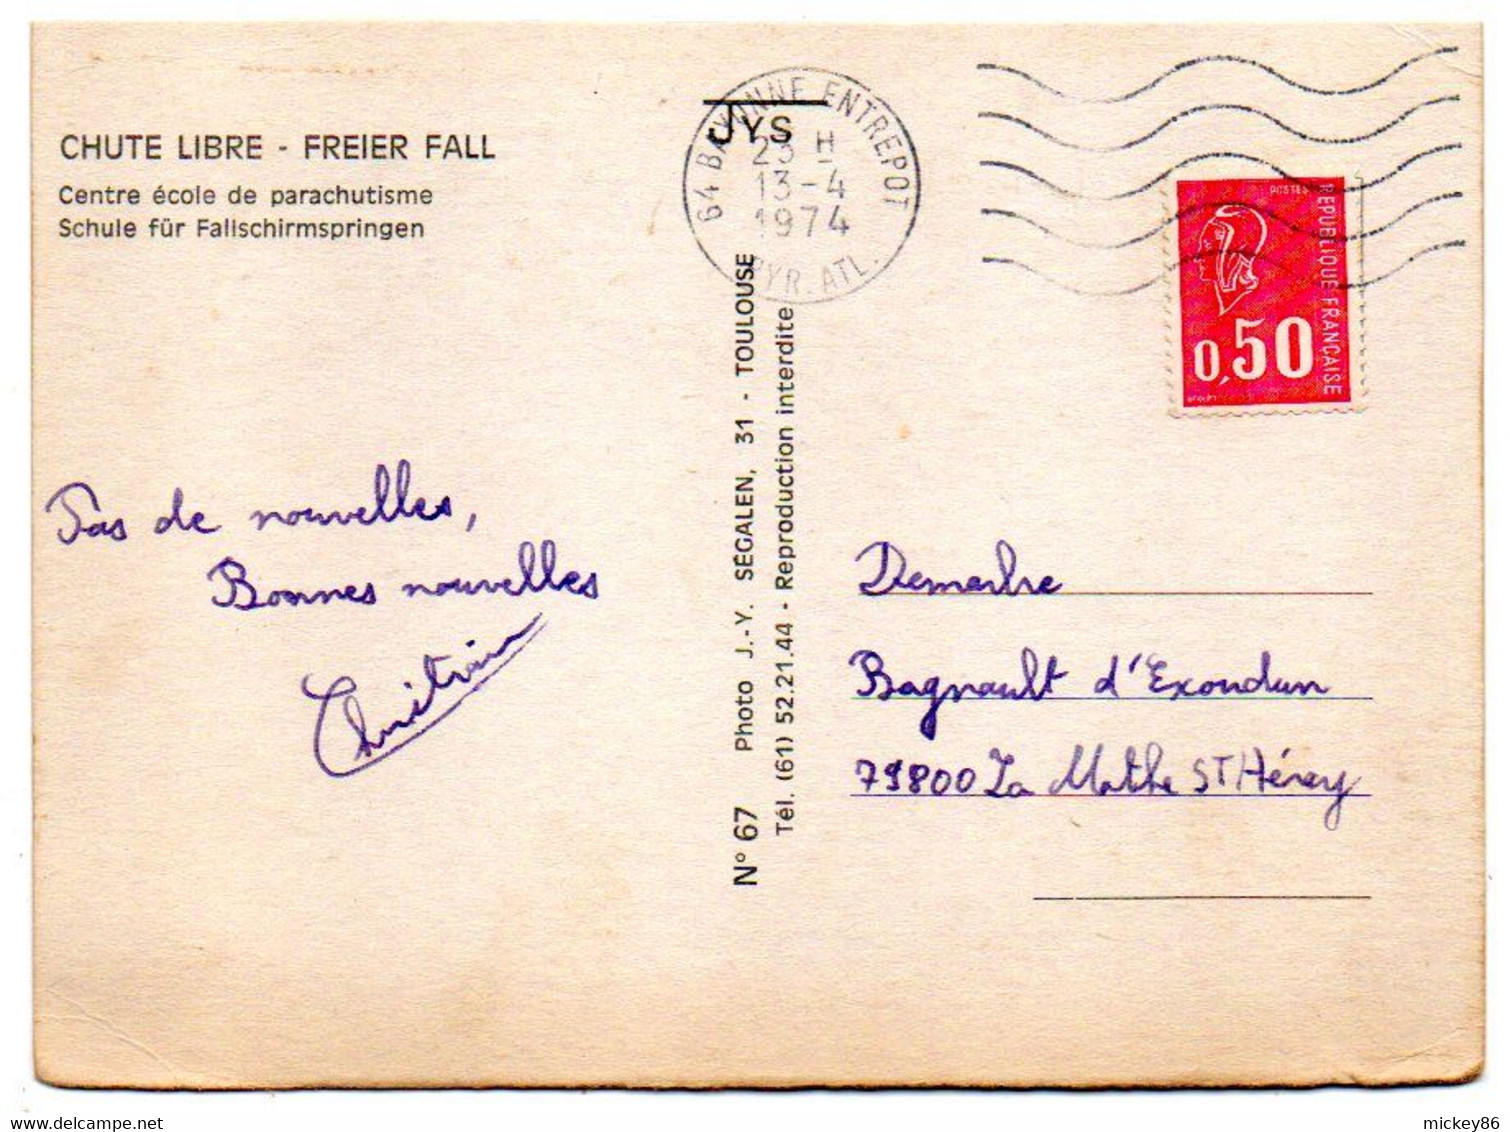 CHUTE LIBRE - FREIER FALL
Centre école de parachutisme
Schule für Fallschirmspringen
Pas de nouvelles,
Bonnes nouvelles
JYS
64 BAYONNE ENTREPOT
23 H
13-4
1974
PYR. ATL.
N° 67 Photo J.-Y. SÉGALEN, 31 - TOULOUSE
Tél. (61) 52.21.44 - Reproduction interdite
POSTES
REPUBLIQUE FRANCAISE
0,50
Bagnault d'Exoudun
79800 La Mothe ST Héray
mickey86